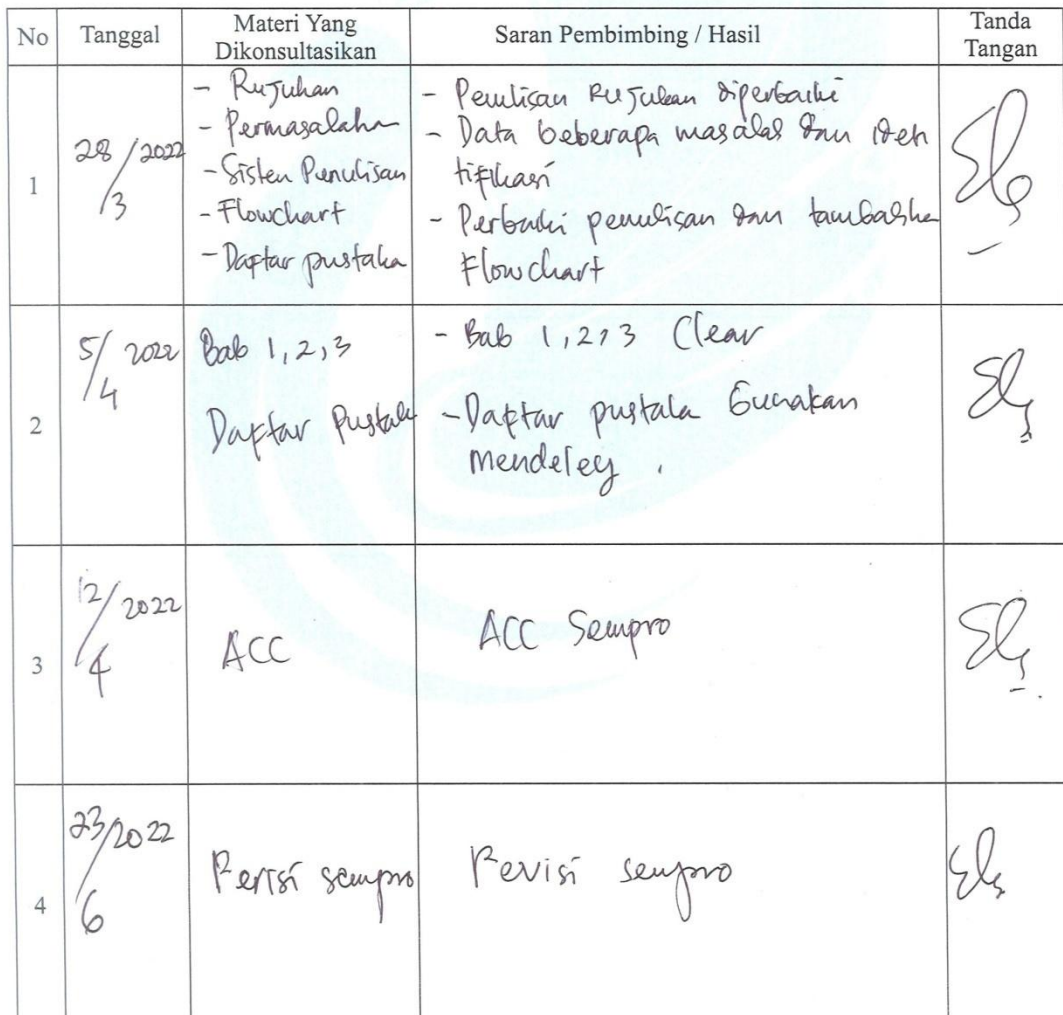 No Tanggal Materi Yang Dikonsultasikan Saran Pembimbing / Hasil Tanda Tangan
1
28/3 2022
- Rujuhan
- Permasalahan
- Sistem Penulisan
- Flowchart
- Daftar pustaka
- Penulisan Rujukan diperbaiki
- Data beberapa masalah dan iden
tifikasi
- Perbaiki penulisan dan tambahka
Flowchart
2
5/4 2022
Bab 1, 2, 3
Daftar Pustaka
- Bab 1, 2, 3 Clear
- Daftar pustaka Gunakan
mendeley .
3
12/4 2022
ACC
ACC Sempro
4
23/6 2022
Revisi sempro
Revisi sempro